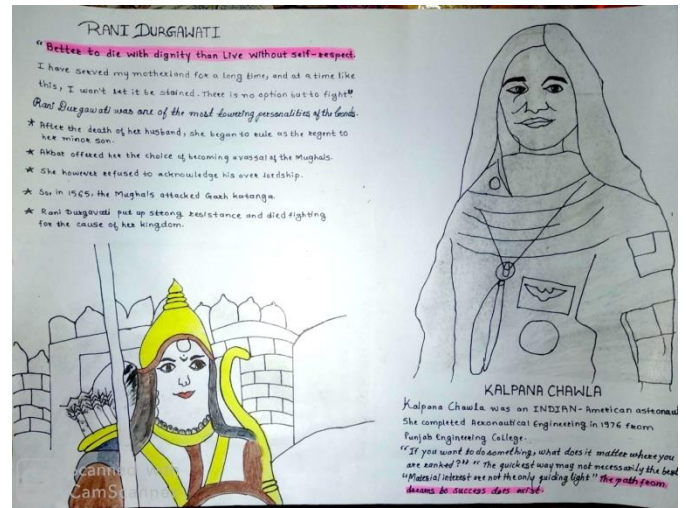 RANI DURGAWATI
"Better to die with dignity than Live without self-respect.
I have served my motherland for a long time, and at a time like
this, I won't let it be stained. There is no option but to fight"
Rani Durgawati was one of the most towering personalities of the Gonds.
★ After the death of her husband, she began to rule as the regent to
her minor son.
★ Akbar offered her the choice of becoming a vassal of the Mughals.
★ She however refused to acknowledge his over lordship.
★ So, in 1565, the Mughals attacked Garh katanga.
★ Rani Durgavati put up strong resistance and died fighting
for the cause of her kingdom.
Scanned with
CamScanner
KALPANA CHAWLA
Kalpana Chawla was an INDIAN-American astronaut
She completed Aeronautical Engineering in 1976 from
Punjab Engineering College.
"If you want to do something, what does it matter where you
are ranked?" "The quickest way may not necessarily the best
"Material interest are not the only guiding light" The path from
dreams to success does exist.